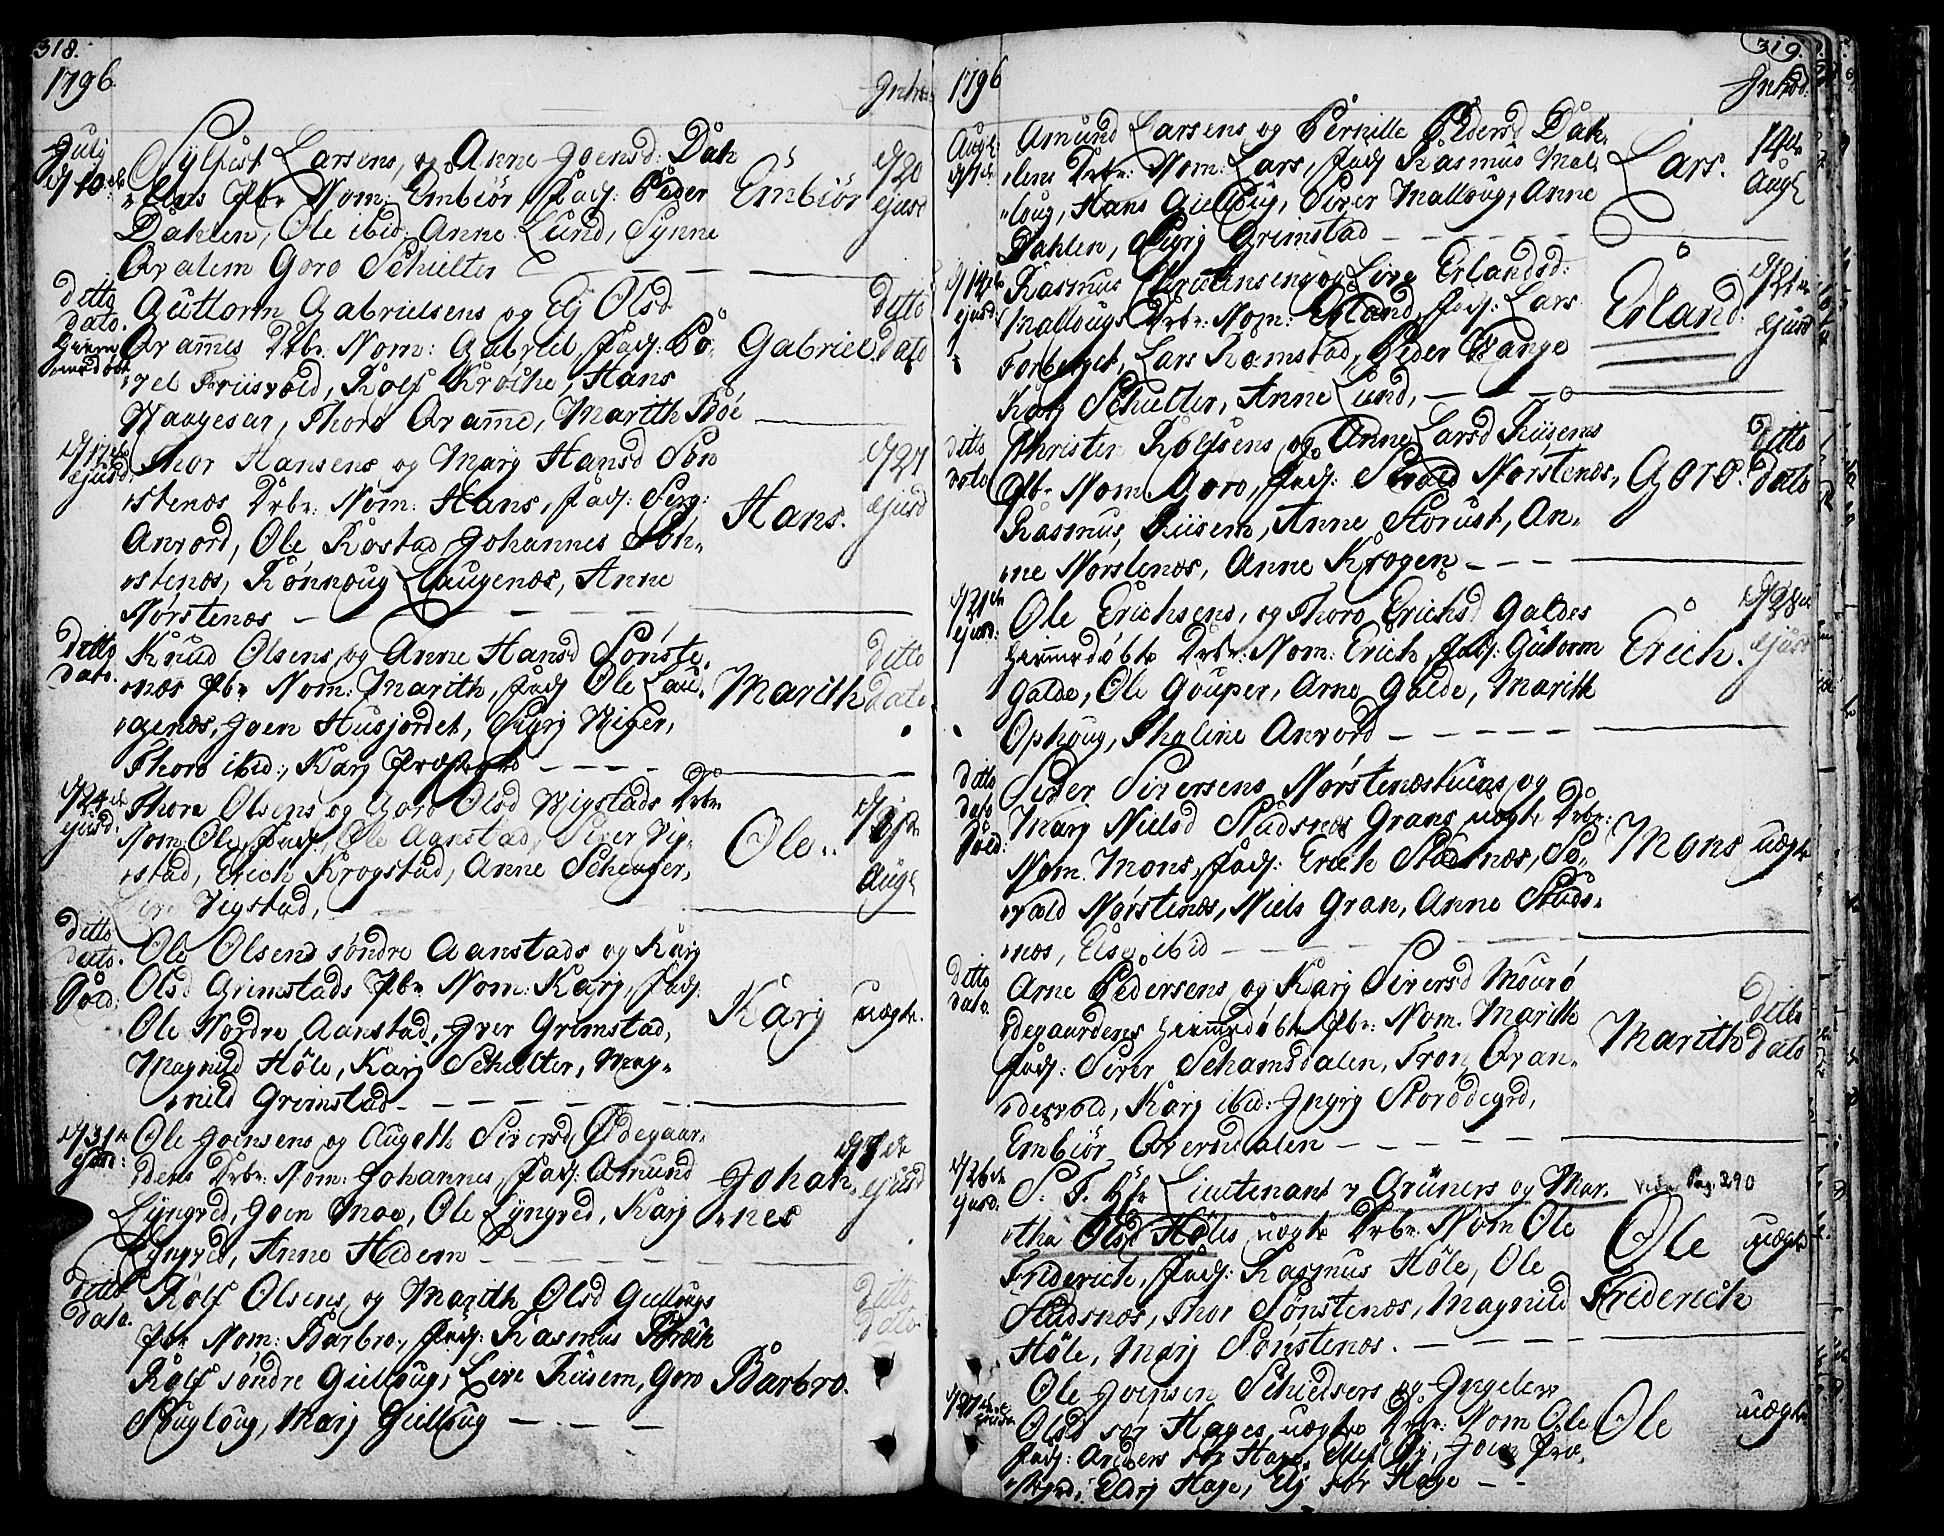 318.
1796.
Introd
July
d 10de
Sylfest Larsens, og Anne Joensd: Dah
lens Pbr: Nom: Embiör, Fad: Peder
Dahlen, Ole ibid: Anne Lund, Synne
Qvalem Goro Schielter
Embiör
d 20
ejusd
ditto
dato.
Hiemmedöbt
Guttorm Gabrielsens og Elj Olsd
Qvames Drbr: Nom: Gabriel, Fad: Bö-
vel Friisvold, Rolf Kroche, Hans
Waagesar, Thoro Qvamme, Marith Böe
Gabriel
ditto
dato
d 17de
ejusd
Thor Hansens og Marj Hansd Sön
stenæs Drbr: Nom: Hans, Fad: Serg:
Anvord, Ole Kostad Johannes Sön-
stenæs, Rönnoug Laugenæs, Anne
Nörstenæs
Hans.
d 27
ejusd
ditto
dato.
Knud Olsens og Anne Hansd Sönste-
næs Pbr: Nom: Marith, Fad: Ole Lau-
genæs, Joen Husjordet, Sigrj Wiger,
Thoro ibid:, Karj Præstegrd
Marith
ditto
dato
d 24de
ejusd:
Thore Olsens og Goro Olsd Wigstads Drbr
Nom: Ole, Fad: Ole Aanstad, Siver Vig-
stad, Erich Krogstad, Anne Schenger,
Vigstad,
Ole
Augl
ditto
dato.
Sold:
Ole Olsens söndre Aanstads og Karj
Olsd Grimstads Pbr Nom: Karj, Fad:
Ole Nordre Aanstad, Iver Grimstad,
Magnild Höle, Karj Schelter, Mag-
nild Grimstad
Karj
uægte.
d 31te
ejusd:
Ole Joensens og Augoth Siversd Ödegaar-
dens Drbr: Nom: Johannes, Fad: Amund
Lyngved, Joen Moe, Ole Lyngved, Karj
Lyngved, Anne Hedem
Johan-
nes
d 7de
ejusd
ditto
dato.
Rolf Olsens og Marith Olsd Giellougs
Pbr Nom: Barbro, Fad: Rasmus Bræk
Rolf söndre Gielloug, Live Kiisem, Goro
Skugloug, Marj Gielloug
Barbro.
ditto
dato
319.
1796
Introd.
Augl:
d 7de
Amund Larsens og Pernille Pedersd Dah-
lens Drbr: Nom: Lars, Fad: Rasmus Mal-
loug, Hans Gielloug, Siver Malloug, Anne
Dahlen, Sigrj Grimstad
Lars.
14de
Augl
d 14de
ejusd:
Rasmus Christensens og Live Erlandsd:
Mallougs Drbr: Nom: Erland, Fad: Lars
Forberget, Lars Ramstad, Peder Wange
Karj Schielter, Anne Lund,
Erland
d 21de
ejusd
ditto
dato
Christen Rolfsens og Anne Larsd Kiisems
Pbr Nom Goro, Fad: Sevald Nörstenæs,
Rasmus Kiisem, Anne Storust, An-
ne Nörstenæs, Anne Krogen
Goro
ditto
dato
d 21de
ejusd:
Ole Erichsens, og Thoro Erichsd Galdes
Hiemmedöbte Drbr: Nom: Erich, Fad: Gutorm
Galde, Ole Gouper, Arne Galde, Marith
Ophoug, Thaline Anvord
Erich.
d 28de
ejusd
ditto
dato
Sold:
Siver Siversens Nörstenæstuens, og
Marj Nielsd Studsnæs Grans uægte Drbr:
Nom. Mons, Fad: Erich Studsnæs, Se-
vald Nörstenæs, Niels Gran, Anne Studs-
næs, Else ibid
Mons
uægte
ditto
dato.
Arne Pedersens og Karj Siversd Mourö
degaardens Hiemmedöbte Pbr: Nom. Marith
Fad: Siver Schamsdalen, Tron Qvan-
desvold, Karj ibid: Ingrj Storödegrd,
Embiör Qversdalen
Marith
ditto
dato
d 26de
ejusd.
S. T. Hr Lieutenant v Grüners og Mar-
tha Olsd Höles uægte Drbr. Nom Ole
Friderich, Fad: Rasmus Höle, Ole
Studsnæs, Thor Sönstenæs, Magnild
Höle, Marj Sönstenæs.
Vide Pag. 290
Ole
Friderich
uægte
Ole Joensen Schielsers og Ingeler
Olsd sör Hages uægte Drbr: Nom Ole
Fad: Anders sör Hage, Joen Præ-
stgrd, Eldrj Hage, Elj sör Hage
Ole
uægte